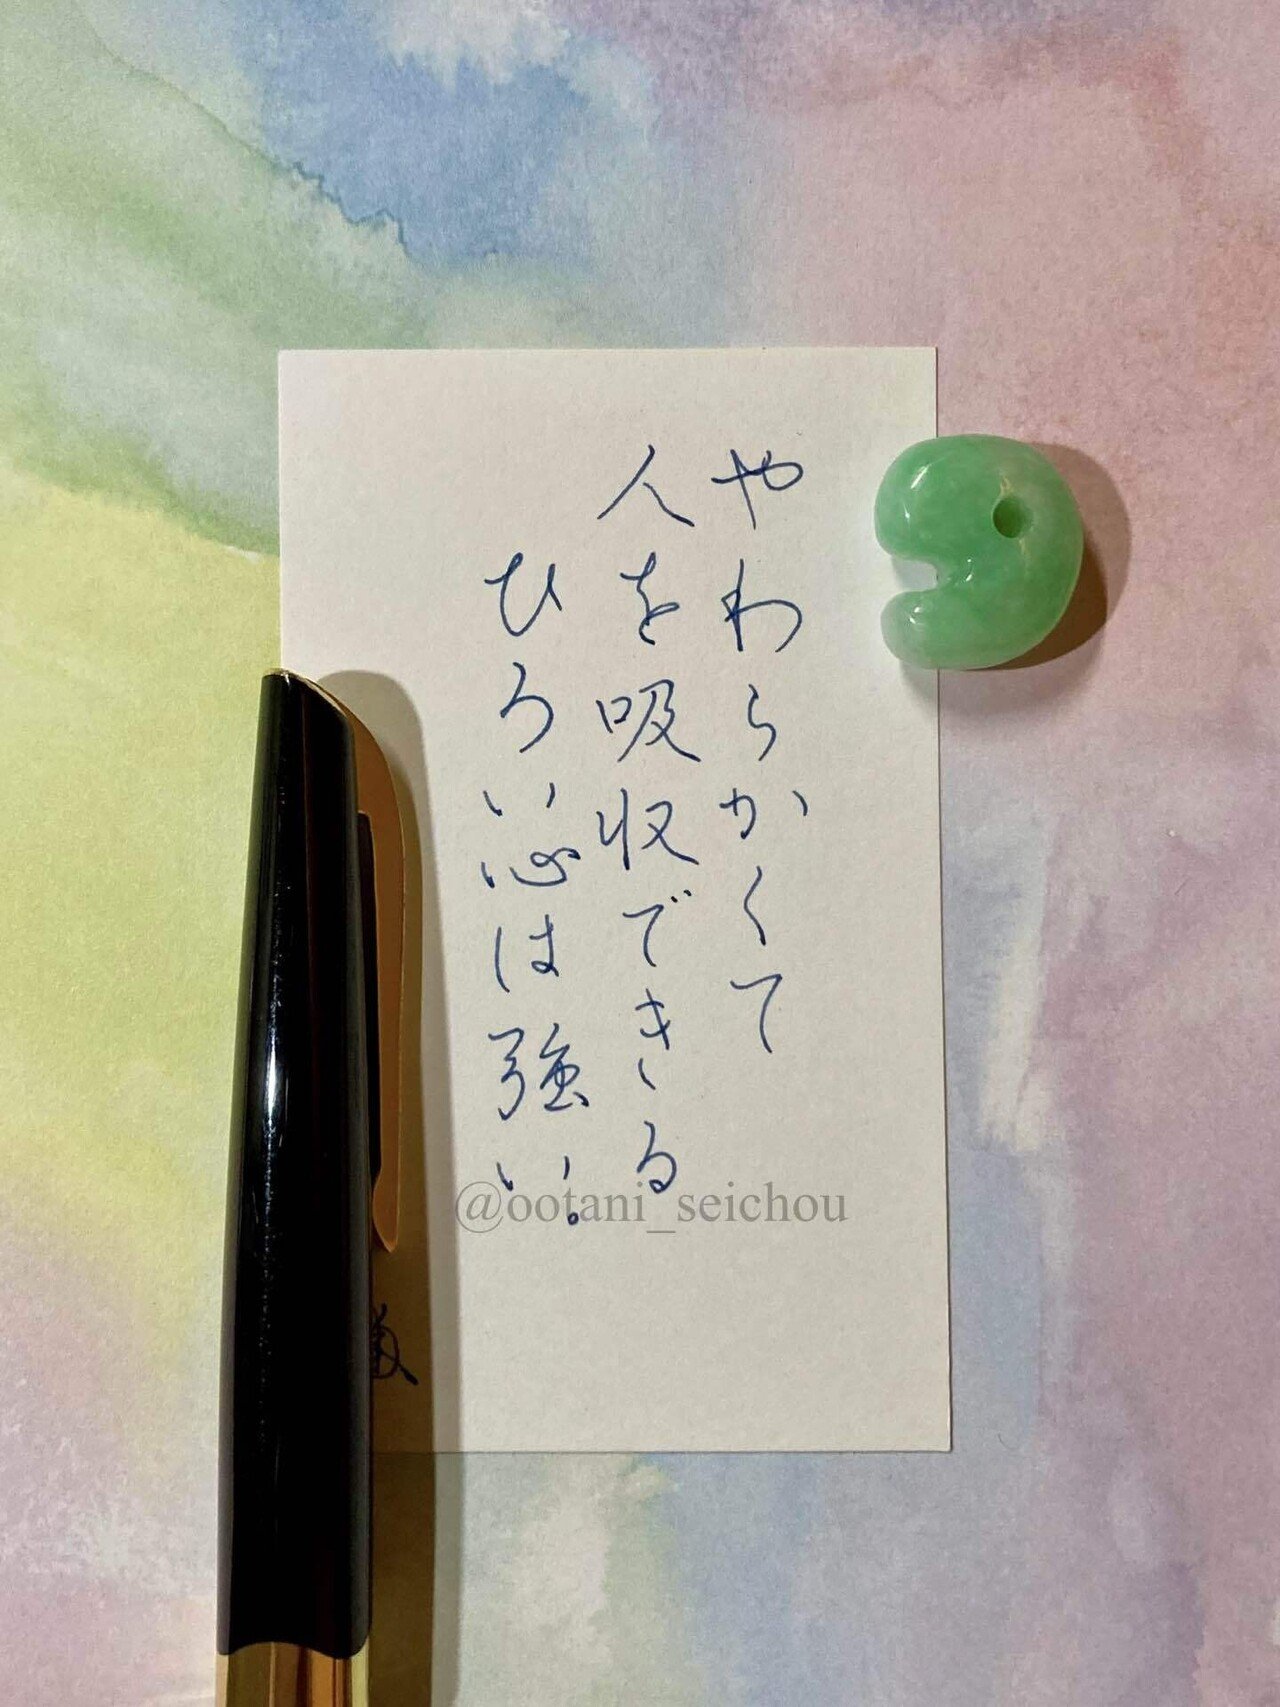 やわらかくて
人を吸収できる
ひろい心は強い。
@ootani_seichou